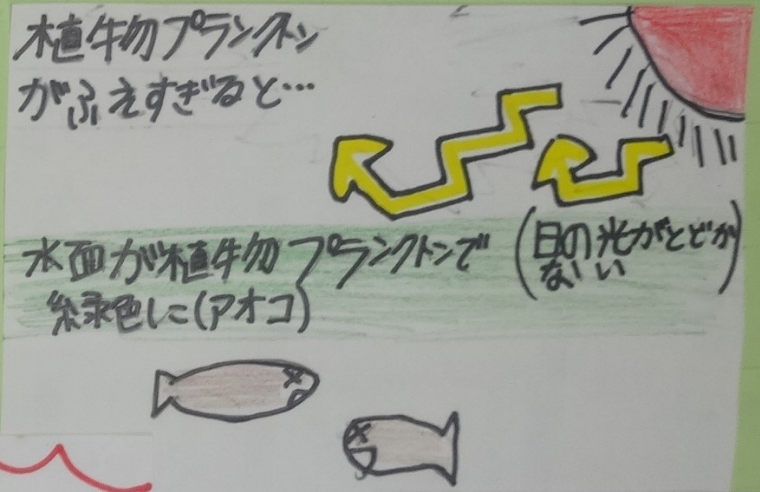 植物プランクトン
がふえすぎると…
水面が植物プランクトンで
緑色に(アオコ)
(日の光がとどか
ない)